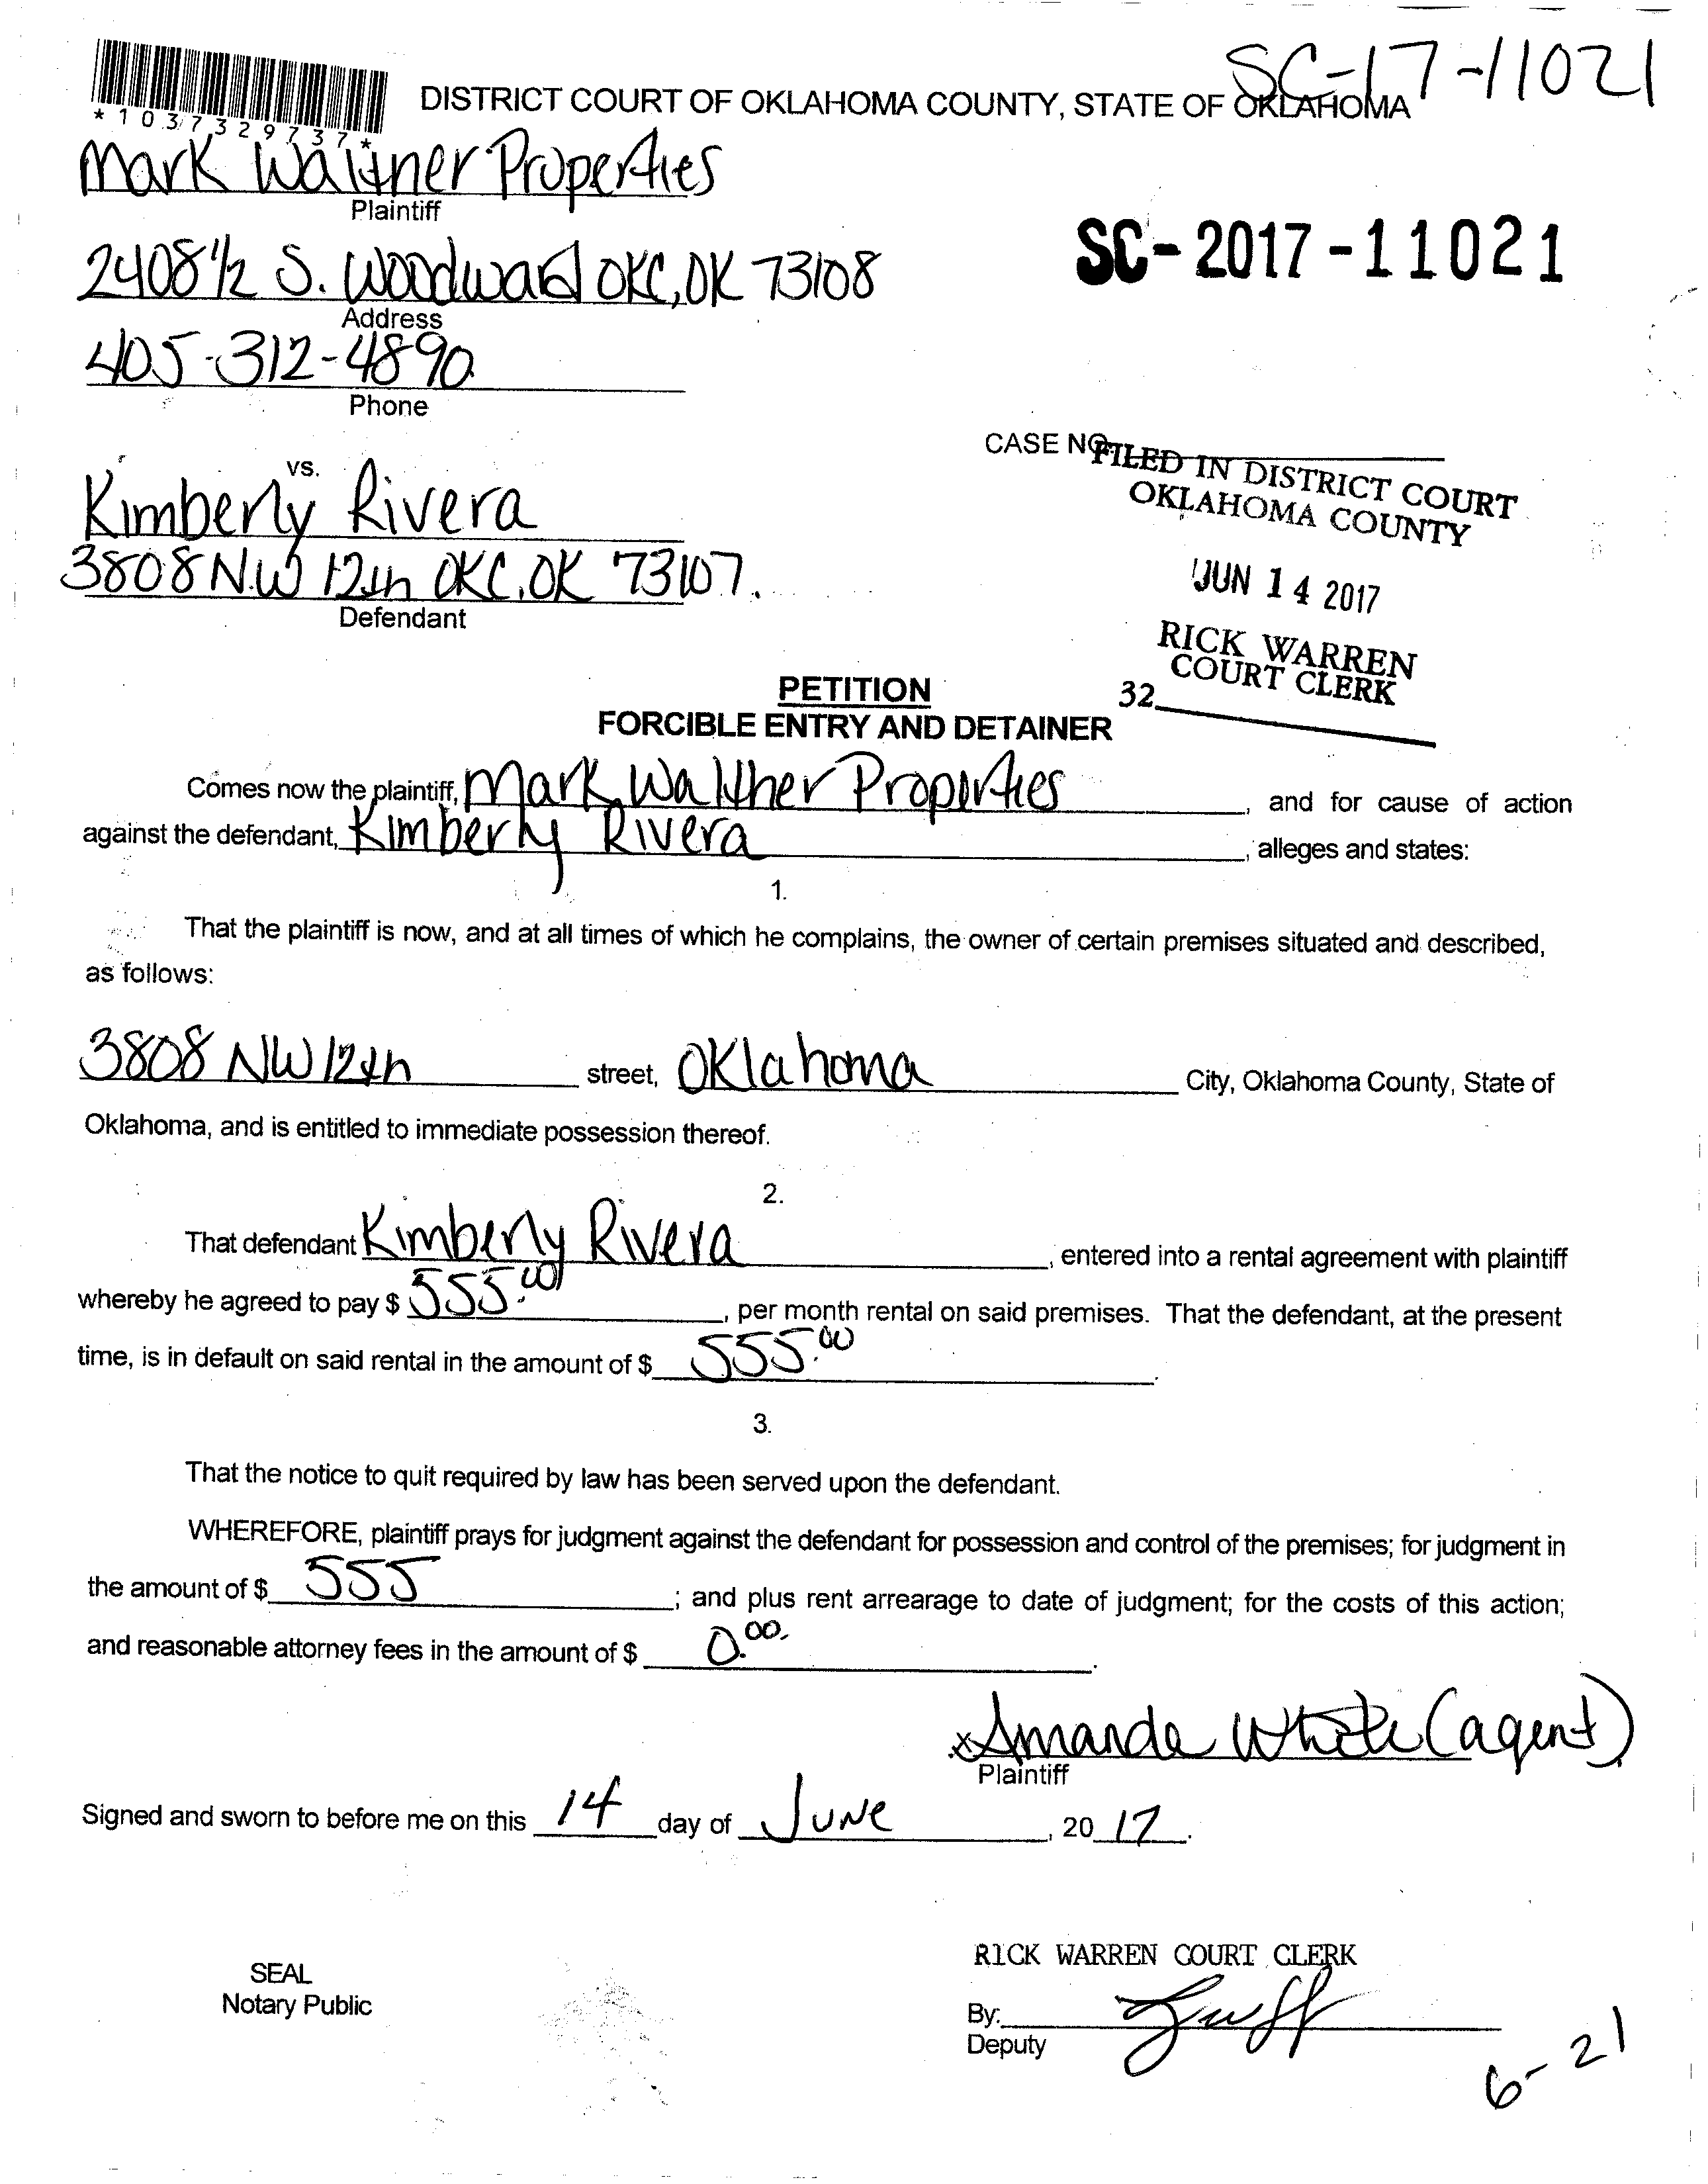 SC-17-11021
*1037329737*
DISTRICT COURT OF OKLAHOMA COUNTY, STATE OF OKLAHOMA
Mark Walther Properties
Plaintiff
SC-2017-11021
2408½ S. Woodward OKC, OK 73108
Address
405-312-4890
Phone
CASE NO.
FILED IN DISTRICT COURT
OKLAHOMA COUNTY
vs.
Kimberly Rivera
3808 N.W 12th OKC, OK 73107.
Defendant
JUN 14 2017
RICK WARREN
COURT CLERK
32
PETITION
FORCIBLE ENTRY AND DETAINER
Comes now the plaintiff, Mark Walther Properties, and for cause of action
against the defendant, Kimberly Rivera, alleges and states:
1.
That the plaintiff is now, and at all times of which he complains, the owner of certain premises situated and described,
as follows:
3808 NW 12th street, Oklahoma City, Oklahoma County, State of
Oklahoma, and is entitled to immediate possession thereof.
2.
That defendant Kimberly Rivera, entered into a rental agreement with plaintiff
whereby he agreed to pay $ 555.00, per month rental on said premises. That the defendant, at the present
time, is in default on said rental in the amount of $ 555.00.
3.
That the notice to quit required by law has been served upon the defendant.
WHEREFORE, plaintiff prays for judgment against the defendant for possession and control of the premises; for judgment in
the amount of $ 555; and plus rent arrearage to date of judgment; for the costs of this action;
and reasonable attorney fees in the amount of $ 0.00.
x Amanda White (agent)
Plaintiff
Signed and sworn to before me on this 14 day of June, 20 17.
RICK WARREN COURT CLERK
SEAL
Notary Public
By:
Deputy
6-21